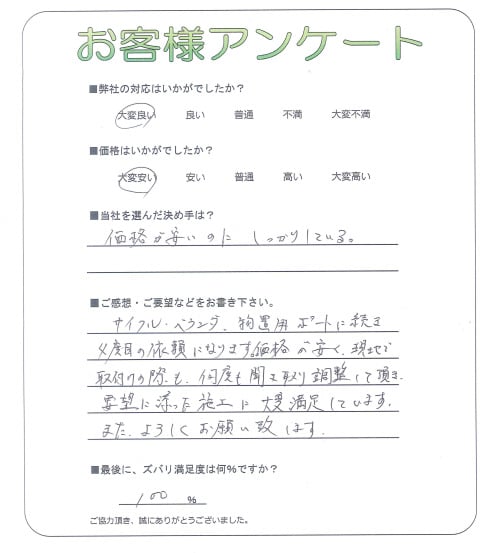 お客様アンケート
■弊社の対応はいかがでしたか?
大変良い 良い 普通 不満 大変不満
■価格はいかがでしたか?
大変安い 安い 普通 高い 大変高い
■当社を選んだ決め手は?
価格が安いのに しっかりしている。
■ご感想・ご要望などをお書き下さい。
サイクル・ベランダ、物置用ポートに続き
4度目の依頼になります。価格が安く、現地で
取付けの際も、何度も聞き取り調整して頂き、
要望に添った施工に大変満足しています。
また、よろしくお願い致します。
■最後に、ズバリ満足度は何%ですか?
100 %
ご協力頂き、誠にありがとうございました。